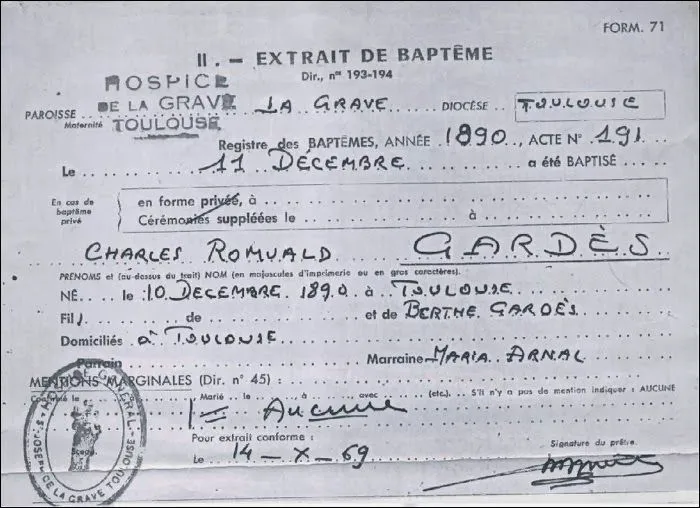 FORM. 71
II. — EXTRAIT DE BAPTÊME
Dir., nos 193-194
HOSPICE
DE LA GRAVE
TOULOUSE
PAROISSE LA GRAVE DIOCÈSE TOULOUSE
Maternité
Registre des BAPTÊMES, ANNÉE 1890, ACTE N° 191
Le 11 DÉCEMBRE a été BAPTISÉ
En cas de baptême privé
en forme privée, à
Cérémonies suppléées le à
CHARLES ROMUALD GARDÈS
PRÉNOMS et (au-dessus du trait) NOM (en majuscules d'imprimerie ou en gros caractères).
NÉ le 10 DECEMBRE 1890 à TOULOUSE
Fils de et de BERTHE GARDÈS
Domiciliés à TOULOUSE
Parrain Marraine MARIA ARNAL
MENTIONS MARGINALES (Dir. n° 45) :
Confirmé le Marié le à avec (etc.) S'il n'y a pas de mention indiquer : AUCUNE
Aucune
Pour extrait conforme :
Le 14 — X — 69
Signature du prêtre.
Sceau
HOPITAL GÉNÉRAL
ST JOSEPH DE LA GRAVE TOULOUSE